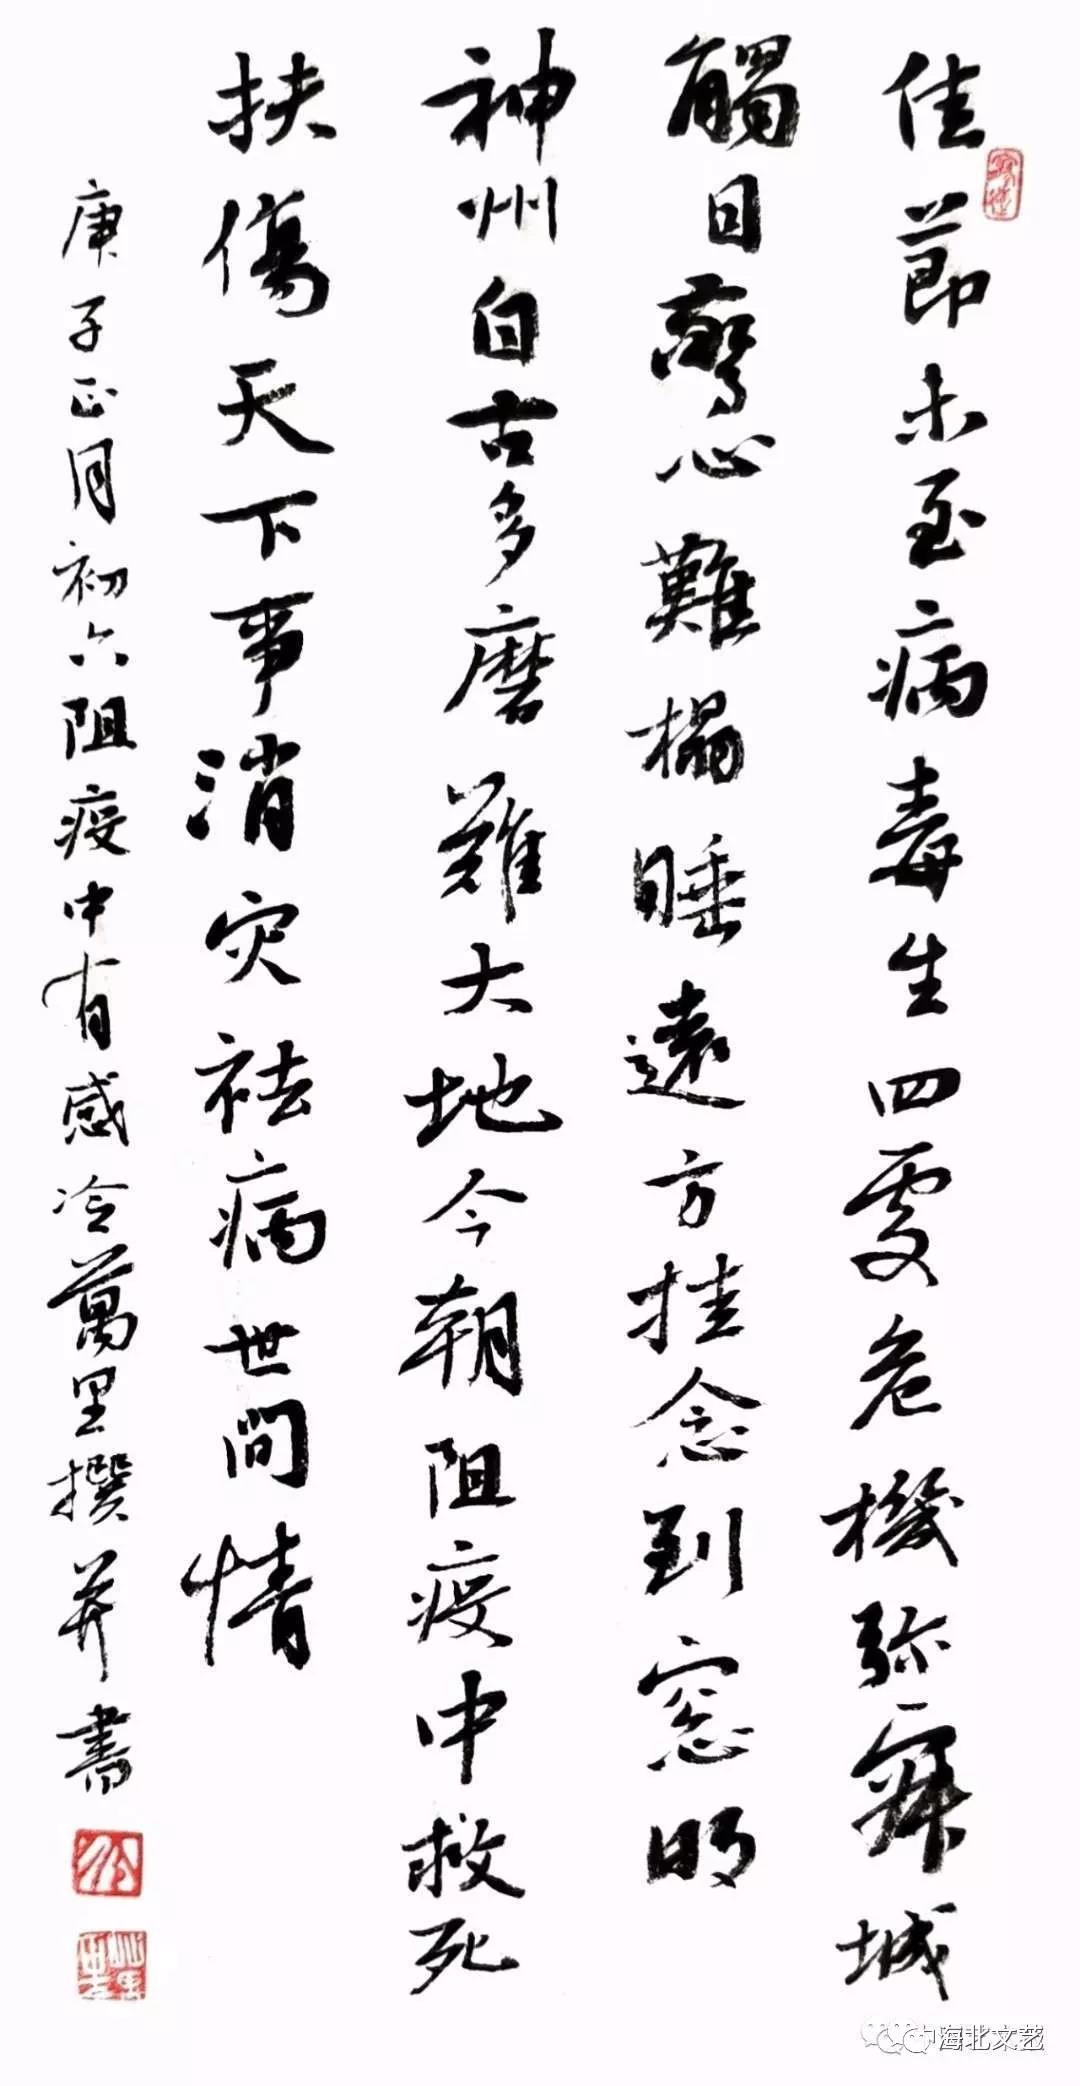 佳節未至病毒生四處危機弥城
觸目驚心難榻睡遠方挂念到窓明
神州自古多磨難大地今朝阻疫中救死
扶傷天下事消灾祛病世間情
庚子正月初六阻疫中有感冷萬里撰并書
海北文艺